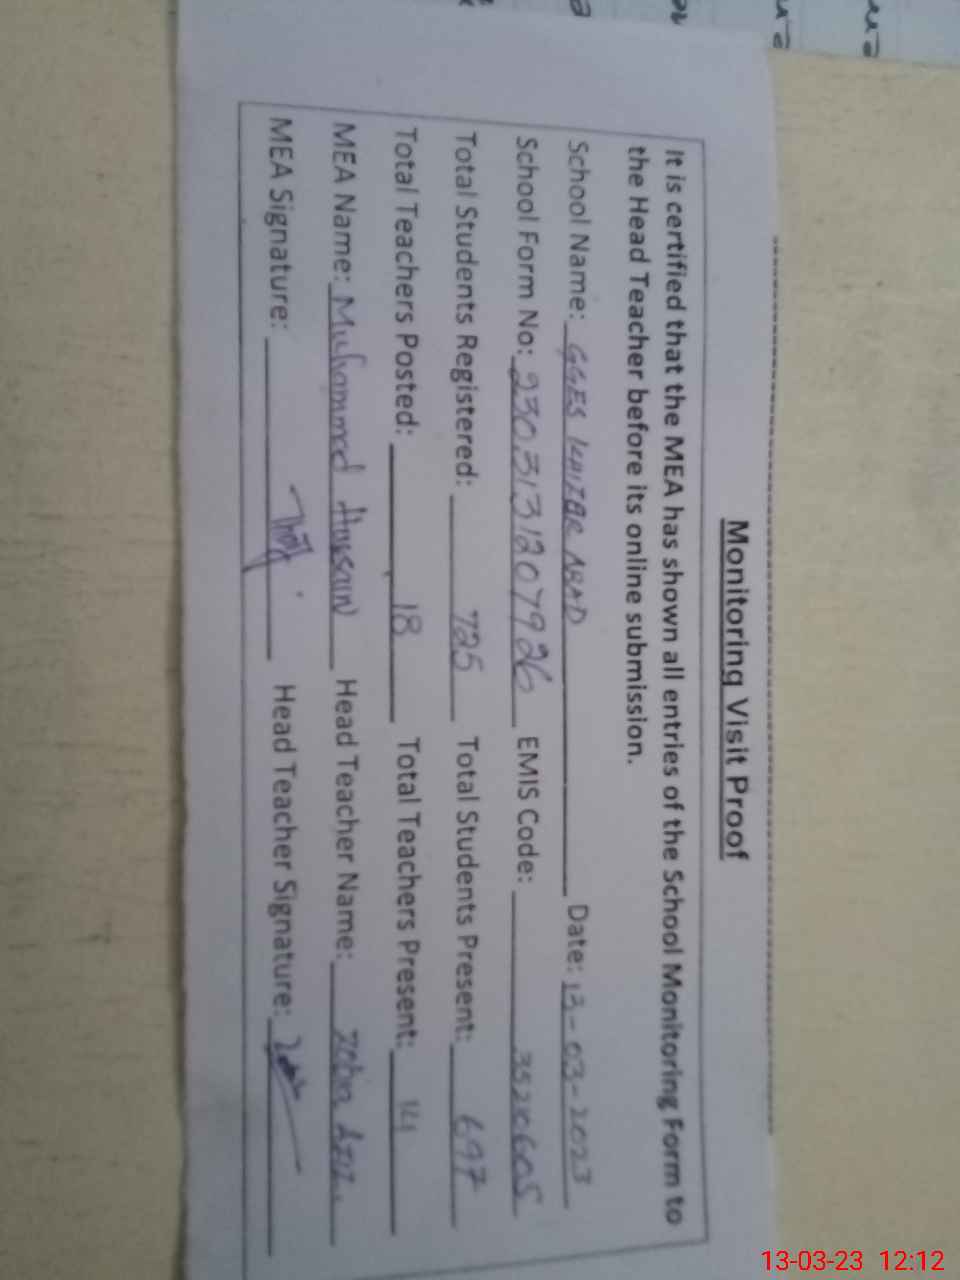 Monitoring Visit Proof
It is certified that the MEA has shown all entries of the School Monitoring Form to
the Head Teacher before its online submission.
School Name: GGES KHIZER ABAD Date: 13-03-2023
School Form No: 2303131207926 EMIS Code: 35210605
Total Students Registered: 725 Total Students Present: 697
Total Teachers Posted: 18 Total Teachers Present: 14
MEA Name: Muhammad Hussain Head Teacher Name: Aziz
MEA Signature: Head Teacher Signature:
13-03-23 12:12